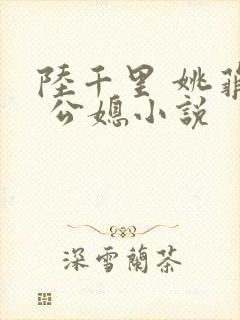 陸千里 姚菲
公媳小說
深雪蘭茶